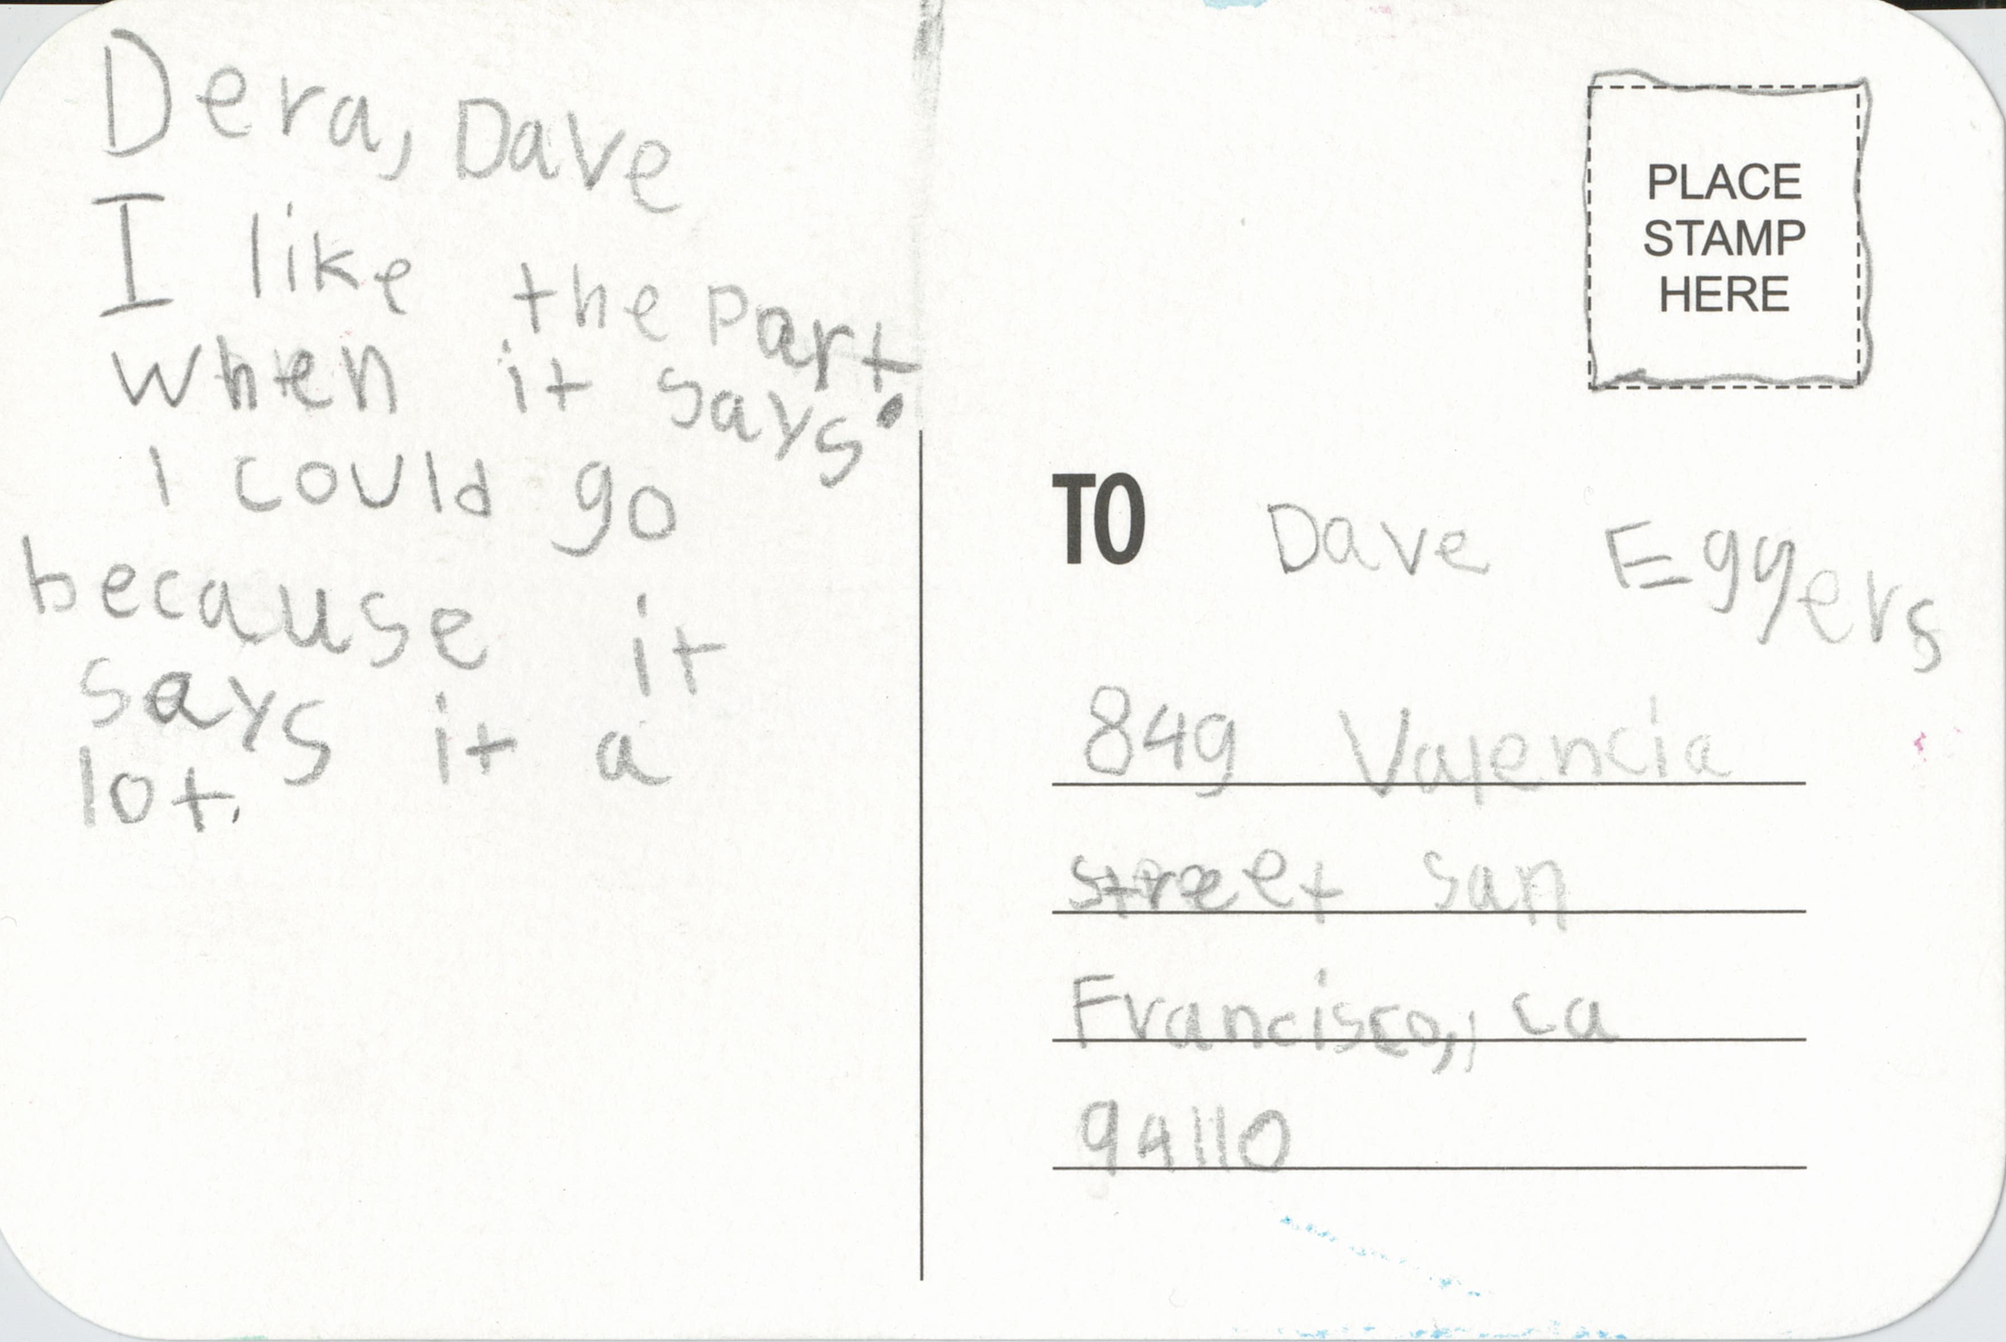 Dera, Dave
I like the Part
when it says
I could go
because it
says it a
lot.
PLACE
STAMP
HERE
TO Dave Eggers
849 Valencia
street san
Francisco, ca
94110